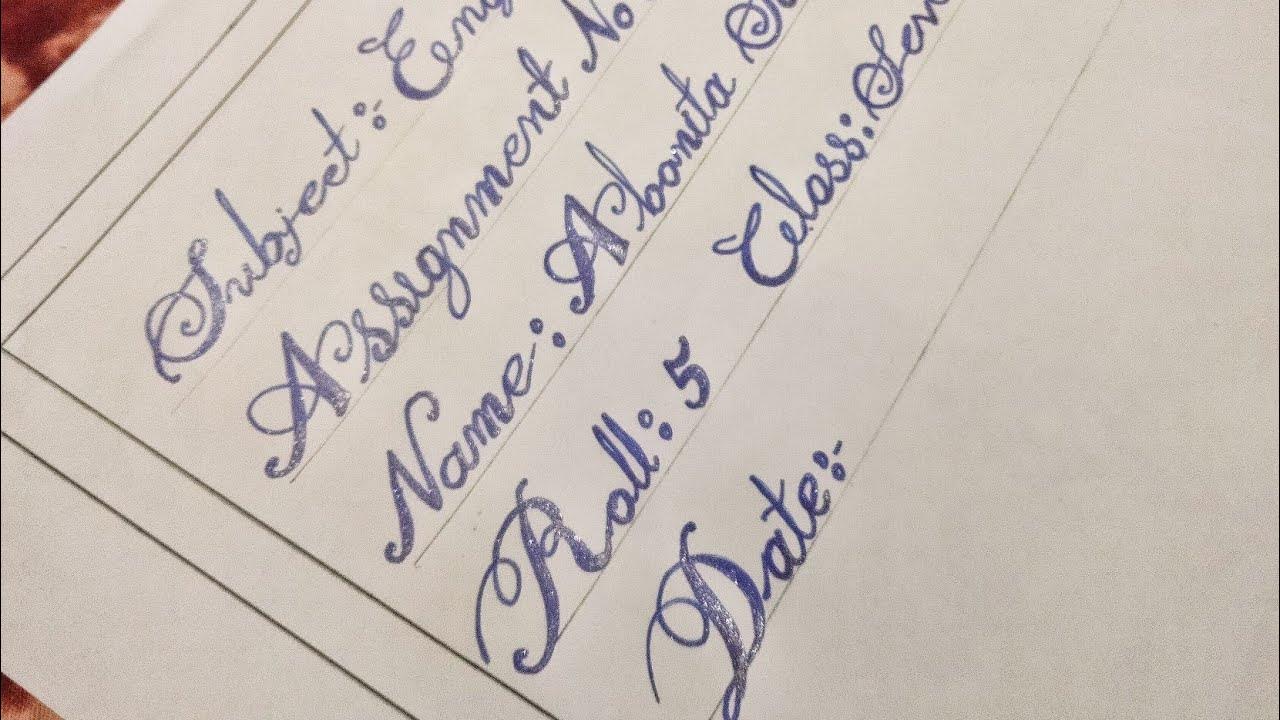 Subject:- Eng
Assignment No
Name: Abonita S
Roll: 5 Class: Seve
Date:-